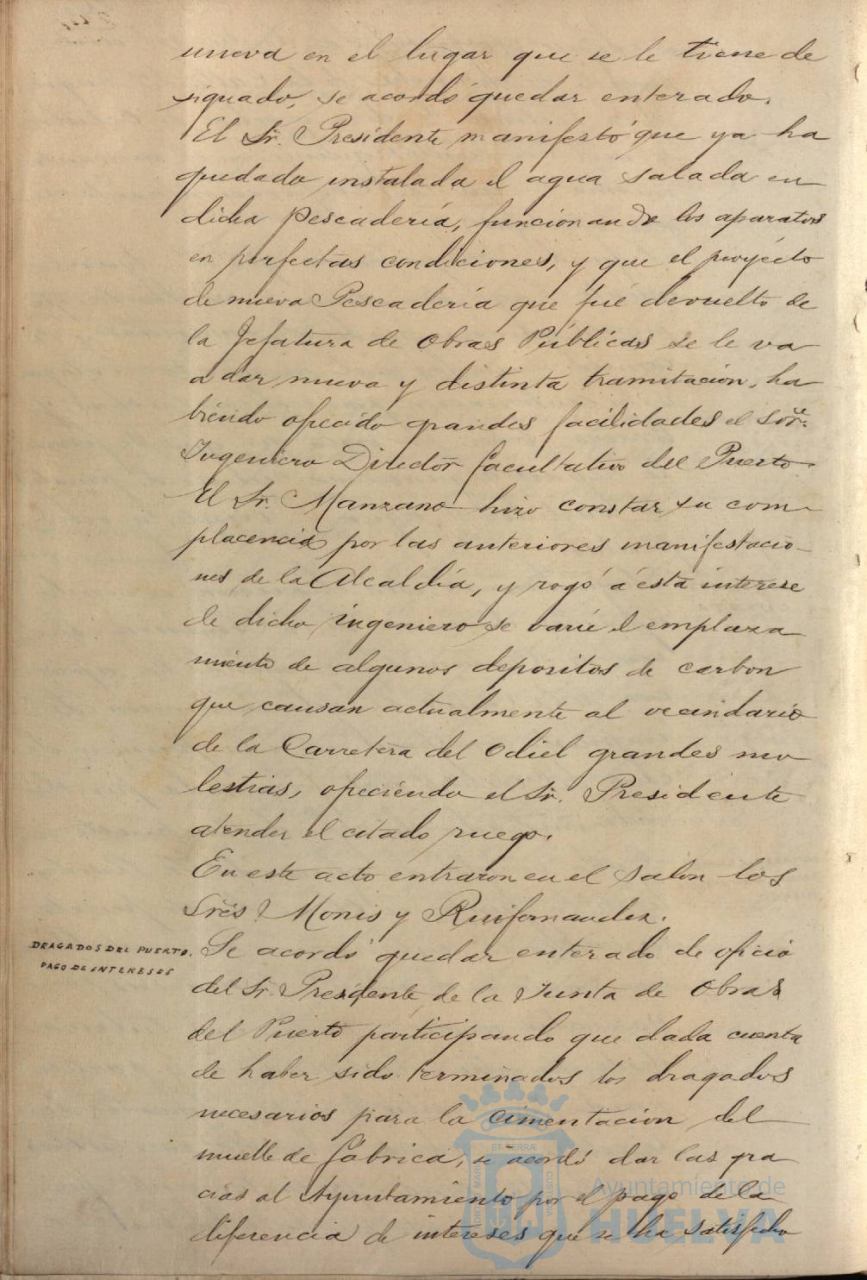 nueva en el lugar que se le tiene de
signado, se acordó quedar enterado.
El Sr. Presidente manifestó que ya ha
quedado instalada el agua salada en
dicha Pescadería, funcionando los aparatos
en perfectas condiciones, y que el proyecto
de nueva Pescadería que fué devuelto de
la Jefatura de Obras Públicas se le va
a dar nueva y distinta tramitación, ha
biendo ofrecido grandes facilidades el Sor.
Ingeniero Director facultativo del Puerto.
El Sr. Manzano hizo constar su com-
placencia por las anteriores manifestacio-
nes de la Alcaldía, y rogó á ésta interese
de dicho ingeniero se varíe el emplaza
miento de algunos depositos de carbon
que causan actualmente al vecindario
de la Carretera del Odiel grandes mo
lestias, ofreciendo el Sr. Presidente
atender el citado ruego.
En este acto entraron en el salon los
Sres. Monis y Ruifernandez.
DRAGADOS DEL PUERTO.
PAGO DE INTERESES
Se acordó quedar enterado de oficio
del Sr. Presidente de la Junta de Obras
del Puerto participando que dada cuenta
de haber sido terminados los dragados
necesarios para la cimentación del
muelle de fábrica, se acordó dar las gra
cias al Ayuntamiento por el pago de la
diferencia de intereses que se ha satisfecho
Ayuntamiento de
HUELVA